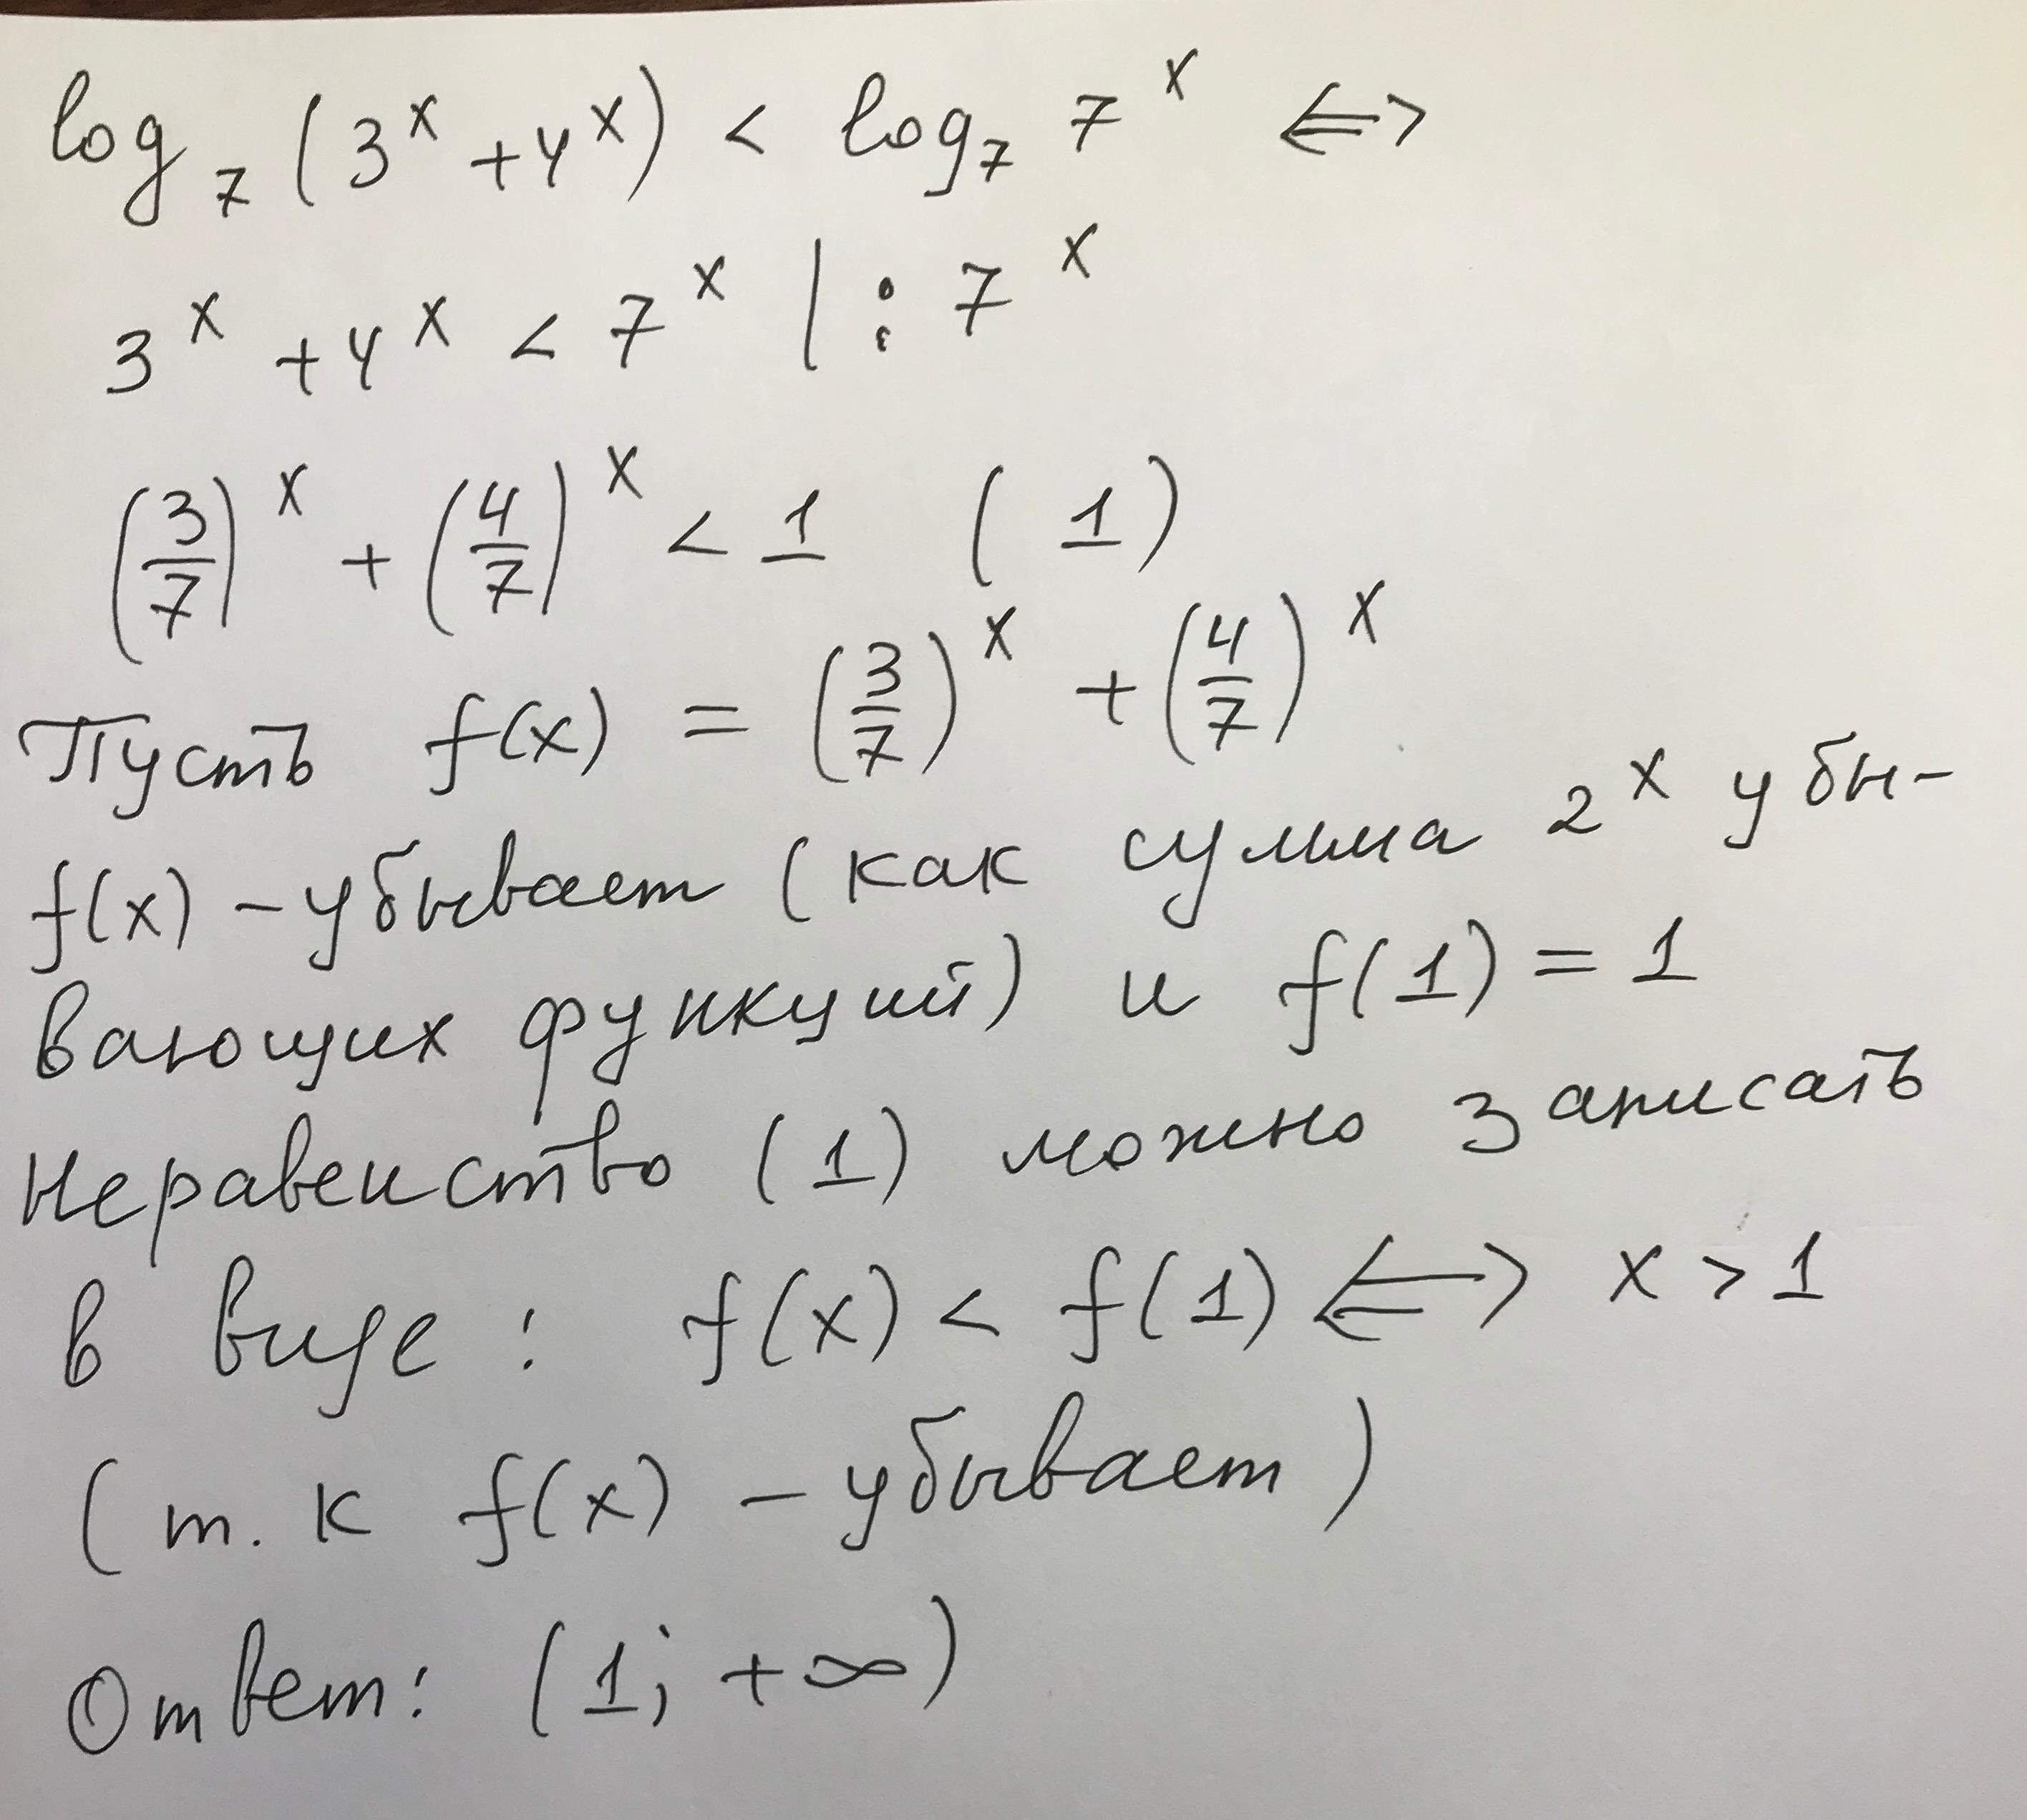 log₇ (3ˣ + 4ˣ) < log₇ 7ˣ <=>
3ˣ + 4ˣ < 7ˣ | : 7ˣ
(3/7)ˣ + (4/7)ˣ < 1 (1)
Пусть f(x) = (3/7)ˣ + (4/7)ˣ
f(x) - убывает (как сумма 2ˣ убы-
вающих функций) и f(1) = 1
Неравенство (1) можно записать
в виде: f(x) < f(1) <=> x > 1
(т.к f(x) - убывает)
Ответ: (1; +∞)